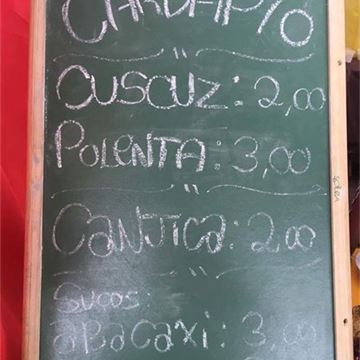 CARDÁPIO
"
CUSCUZ: 2,00
POLENTA: 3,00
"
CANJICA: 2,00
"
SUCOS:
ABACAXI: 3,00